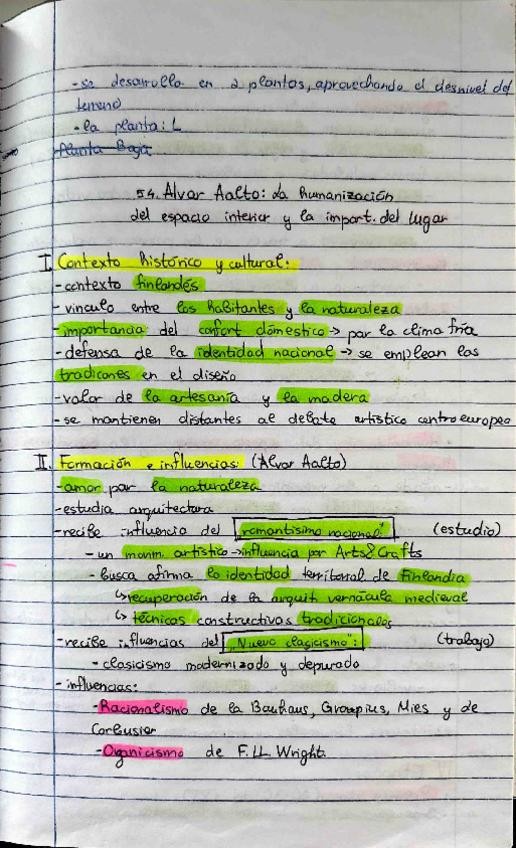 -se desarrolla en 2 plantas, aprovechando el desnivel del
terreno
-la planta: L
Planta Baja
5.4. Alvar Aalto: La humanización
del espacio interior y la import. del lugar
I. Contexto histórico y cultural:
-contexto finlandés
-vinculo entre los habitantes y la naturaleza
-importancia del confort doméstico → por la clima fría
-defensa de la identidad nacional → se emplean las
tradicones en el diseño
-valor de la artesanía y la madera
-se mantienen distantes al debate artístico centroeuropeo
II. Formación e influencias: (Alvar Aalto)
-amor por la naturaleza
-estudia arquitectura
-recibe influencia del "romantisimo nacional" (estudio)
-un movim. artístico → influencia por Arts&Crafts
-busca afirma la identidad territorial de Finlandia
↳ recuperación de la arquit vernácula medieval
↳ técnicas constructivas tradicionales
-recibe influencias del "Nuevo clasicismo": (trabajo)
-clasicismo modernizado y depurado
-influencias:
-Racionalismo de la Bauhaus, Groupius, Mies y de
Corbusier
-Oganicismo de F.LL Wright.